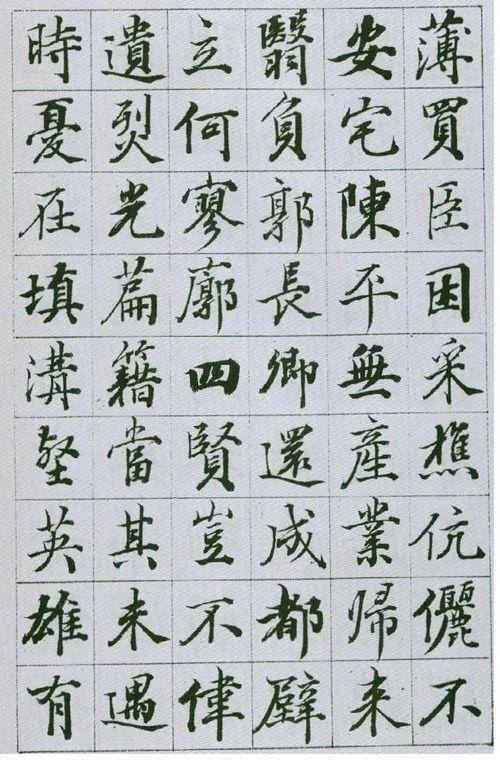 薄買臣困采樵伉儷不
安宅陳平無產業歸来
翳負郭長卿還成都壁
立何寥廓四賢豈不偉
遺烈光篇籍當其未遇
時憂在填溝壑英雄有